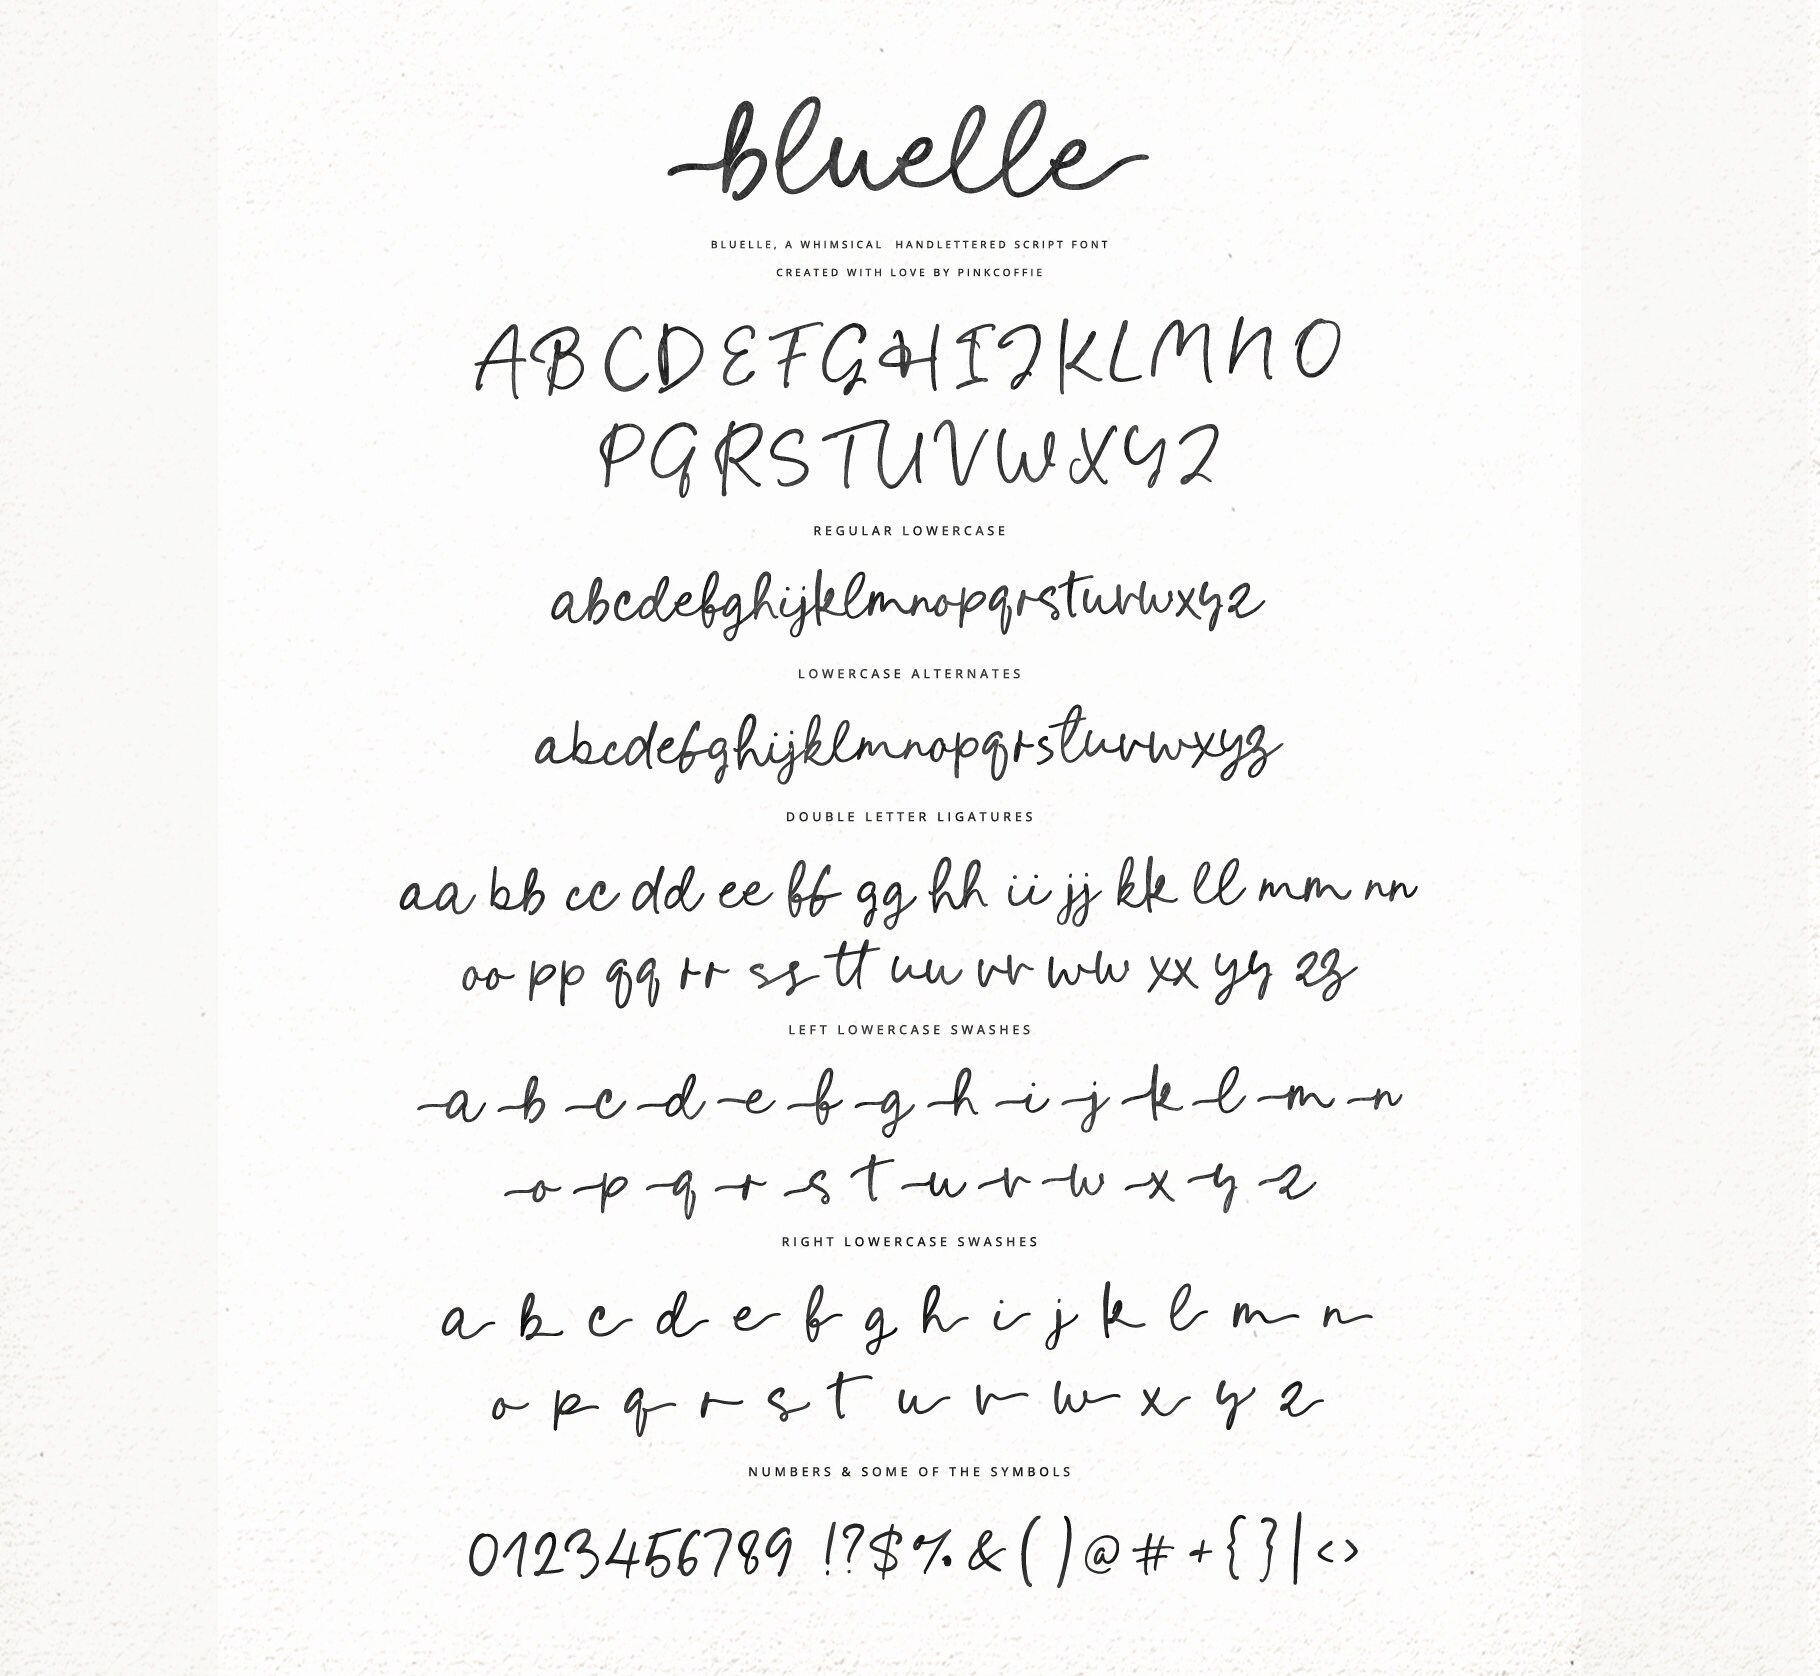 bluelle
BLUELLE, A WHIMSICAL HANDLETTERED SCRIPT FONT
CREATED WITH LOVE BY PINKCOFFIE
A B C D E F G H I J K L M N O
P Q R S T U V W X Y Z
REGULAR LOWERCASE
abcdefghijklmnopqrstuvwxyz
LOWERCASE ALTERNATES
abcdefghijklmnopqrstuvwxyz
DOUBLE LETTER LIGATURES
aa bb cc dd ee ff gg hh ii jj kk ll mm nn
oo pp qq rr ss tt uu vv ww xx yy zz
LEFT LOWERCASE SWASHES
a b c d e f g h i j k l m n
o p q r s t u v w x y z
RIGHT LOWERCASE SWASHES
a b c d e f g h i j k l m n
o p q r s t u v w x y z
NUMBERS & SOME OF THE SYMBOLS
0123456789 !?$%&()@#+{}|<>